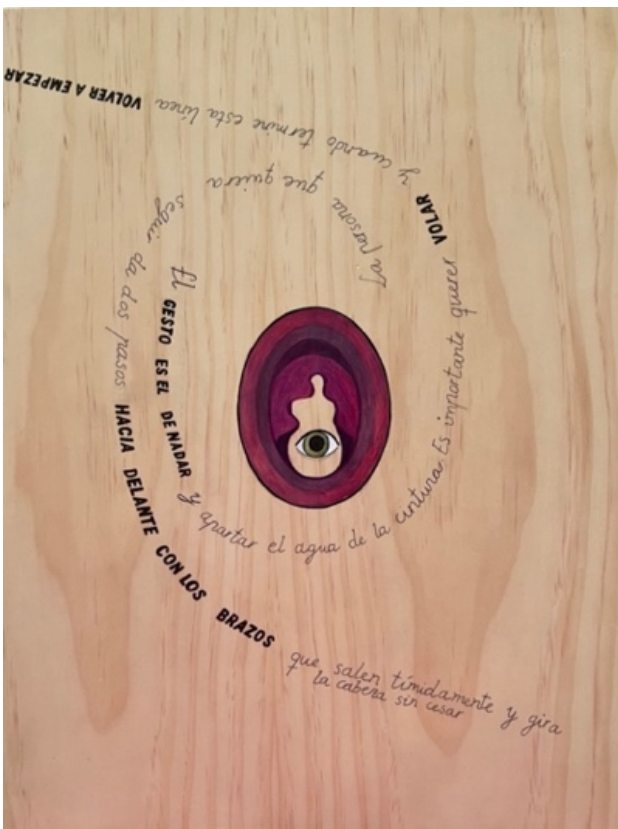 La persona que quiera seguir da dos pasos HACIA DELANTE CON LOS BRAZOS que salen tímidamente y gira
la cabeza sin cesar
El GESTO ES EL DE NADAR y apartar el agua de la cintura. Es importante querer VOLAR y cuando termine esta línea VOLVER A EMPEZAR